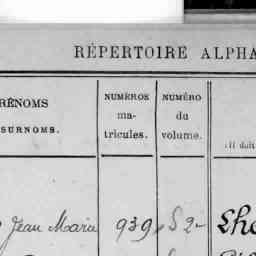 RÉPERTOIRE ALPHA
RÉNOMS
SURNOMS.
NUMÉROS
ma-
tricules.
NUMÉRO
du
volume.
Il doit
Jean Marie 939